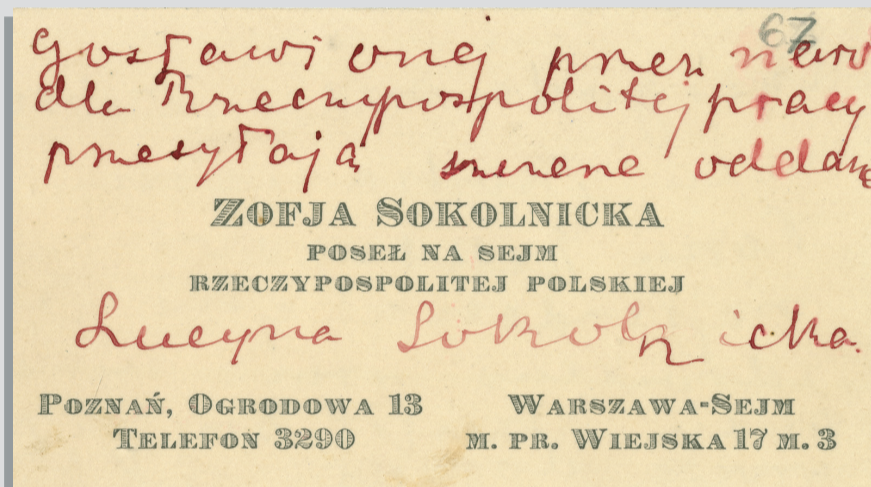 67
dla Rzeczypospolitej pracy
przesyłają szczere oddane
ZOFJA SOKOLNICKA
POSEŁ NA SEJM
RZECZYPOSPOLITEJ POLSKIEJ
Lucyna Sokolnicka.
POZNAŃ, OGRODOWA 13
TELEFON 3290
WARSZAWA-SEJM
M. PR. WIEJSKA 17 M. 3